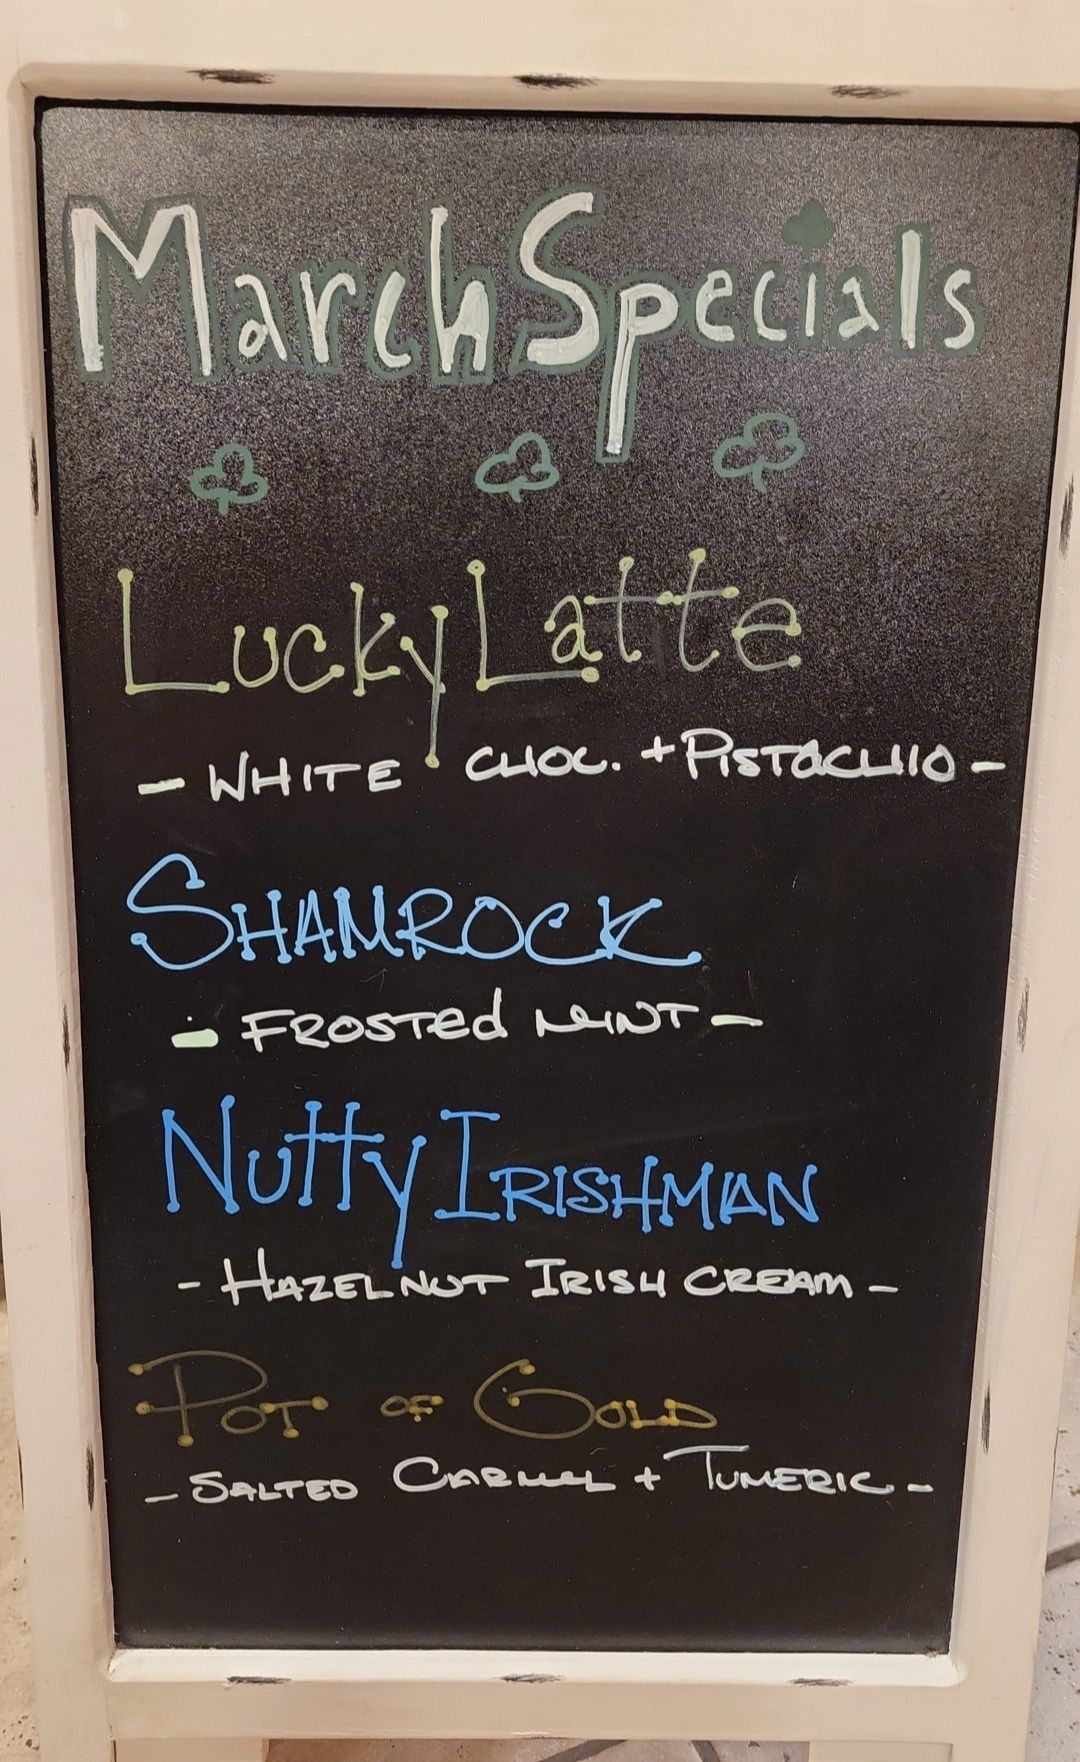 March Specials
Lucky Latte
- WHITE CHOC. + PISTACHIO -
SHAMROCK
- FROSTEd MINT -
Nutty IRISHMAN
- HAZELNUT IRISH CREAM -
POT OF GOLD
- SALTED CARMEL + TUMERIC -